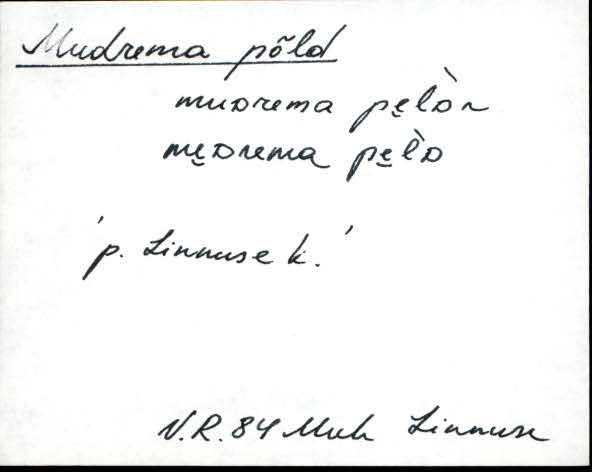 Mudrema põld
muᴅrema pe̮l̀ᴅ̀ʌ
me̮ᴅrema pe̮l̀ᴅ
'p. Linnuse k.'
V.R. 84 Muh Linnuse